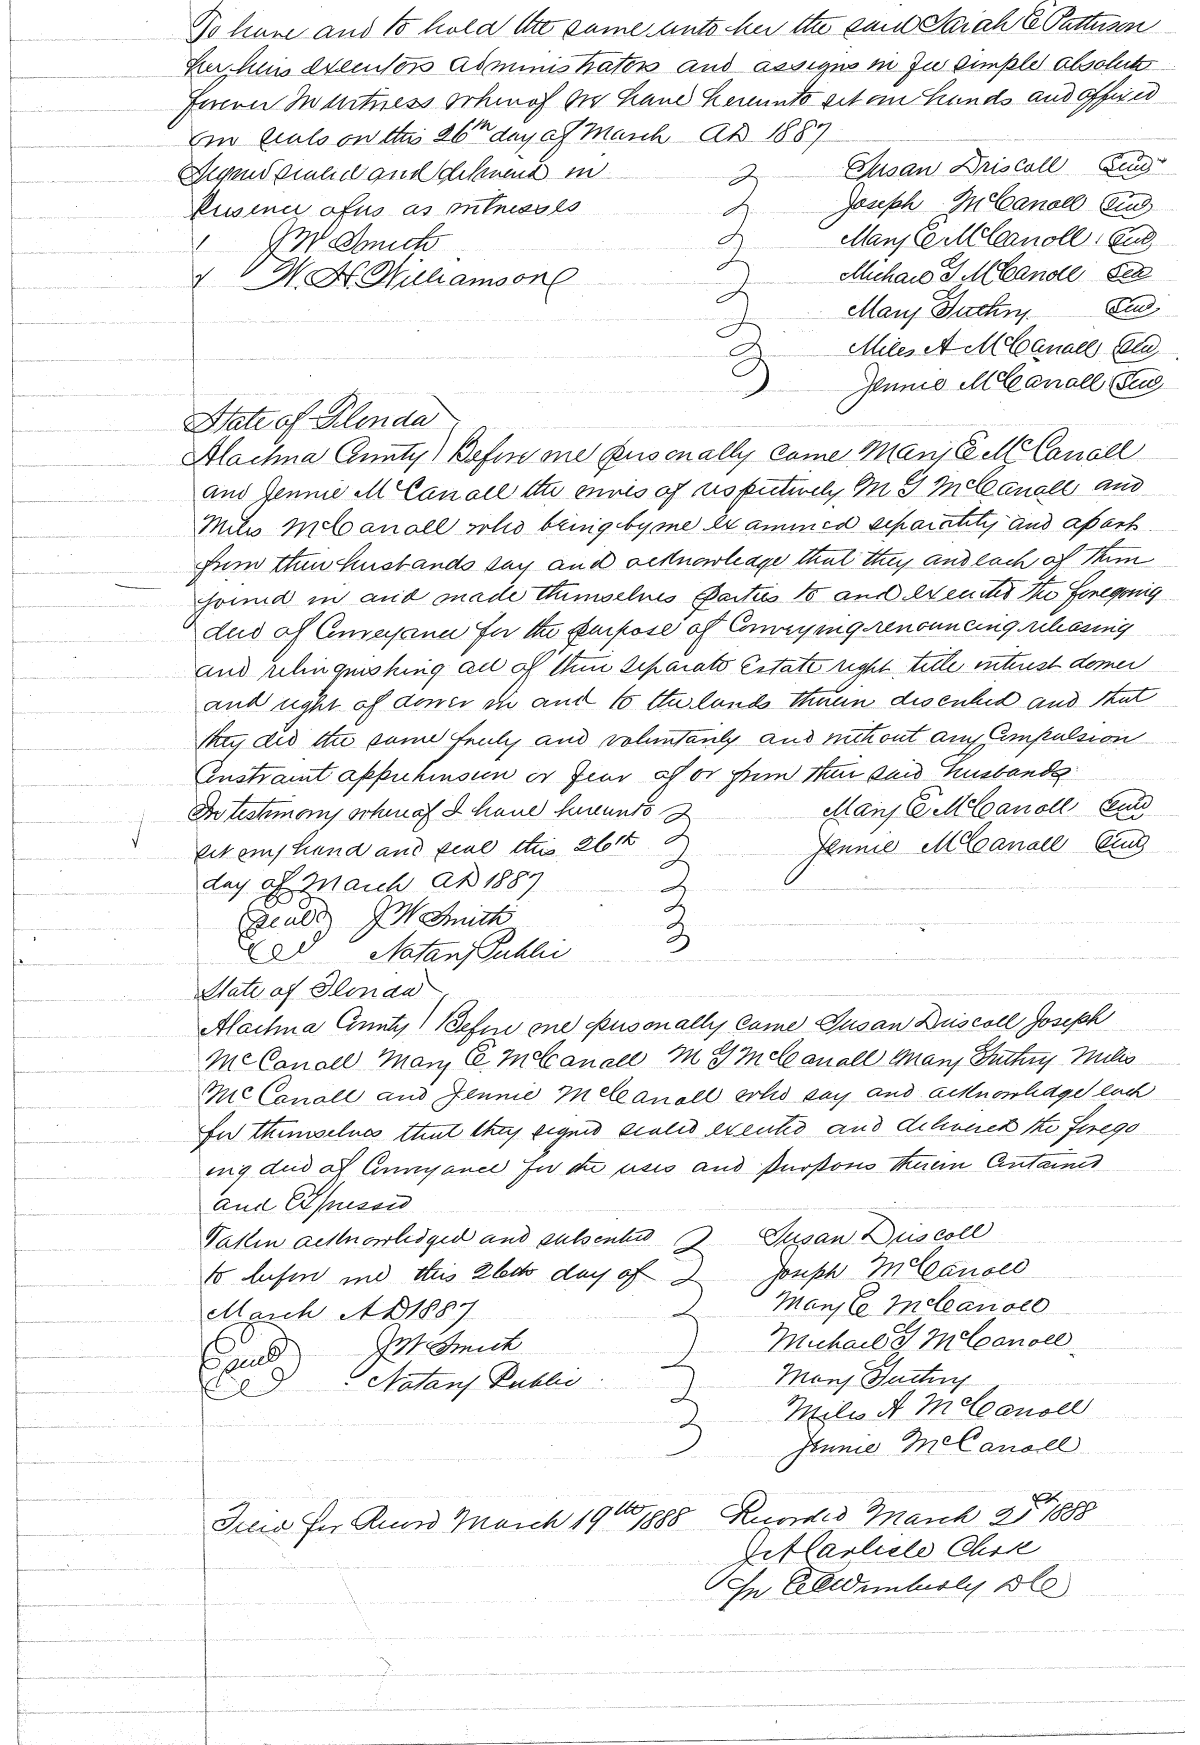 To have and to hold the same unto her the said Sarah E Patterson
her heirs executors administrators and assigns in fee simple absolute
forever In witness whereof we have hereunto set our hands and affixed
our seals on this 26th day of March AD 1887
Signed sealed and delivered in
Presence of us as witnesses
J W Smith
W. H. Williamson
Susan Driscoll Seal
Joseph McCanoll Seal
Mary E McCanoll Seal
Michael G McCanoll Seal
Mary Guthry Seal
Miles A McCanoll Seal
Jennie McCanoll Seal
State of Florida
Alachua County Before me personally came Mary E McCanoll
and Jennie McCanoll the wives of respectively M G McCanoll and
Miles McCanoll who being by me examined separately and apart
from their husbands say and acknowledge that they and each of them
joined in and made themselves parties to and executed the foregoing
deed of Conveyance for the purpose of Conveying renouncing releasing
and relinquishing all of their separate Estate right title interest dower
and right of dower in and to the lands therein described and that
they did the same freely and voluntarily and without any Compulsion
Constraint apprehension or fear of or from their said husbands
In testimony whereof I have hereunto
set my hand and seal this 26th
day of March AD 1887
Seal J W Smith
Notary Public
Mary E McCanoll Seal
Jennie McCanoll Seal
State of Florida
Alachua County Before me personally came Susan Driscoll Joseph
McCanoll Mary E McCanoll M G McCanoll Mary Guthry Miles
McCanoll and Jennie McCanoll who say and acknowledge each
for themselves that they signed sealed executed and delivered the forego
ing deed of Conveyance for the uses and purposes therein Contained
and Expressed
Taken acknowledged and subscribed
to before me this 26th day of
March AD 1887
Seal J W Smith
Notary Public
Susan Driscoll
Joseph McCanoll
Mary E McCanoll
Michael G McCanoll
Mary Guthry
Miles A McCanoll
Jennie McCanoll
Filed for Record March 19th 1888 Recorded March 1888
J A Carlisle Clerk
Pr Wimberly DC